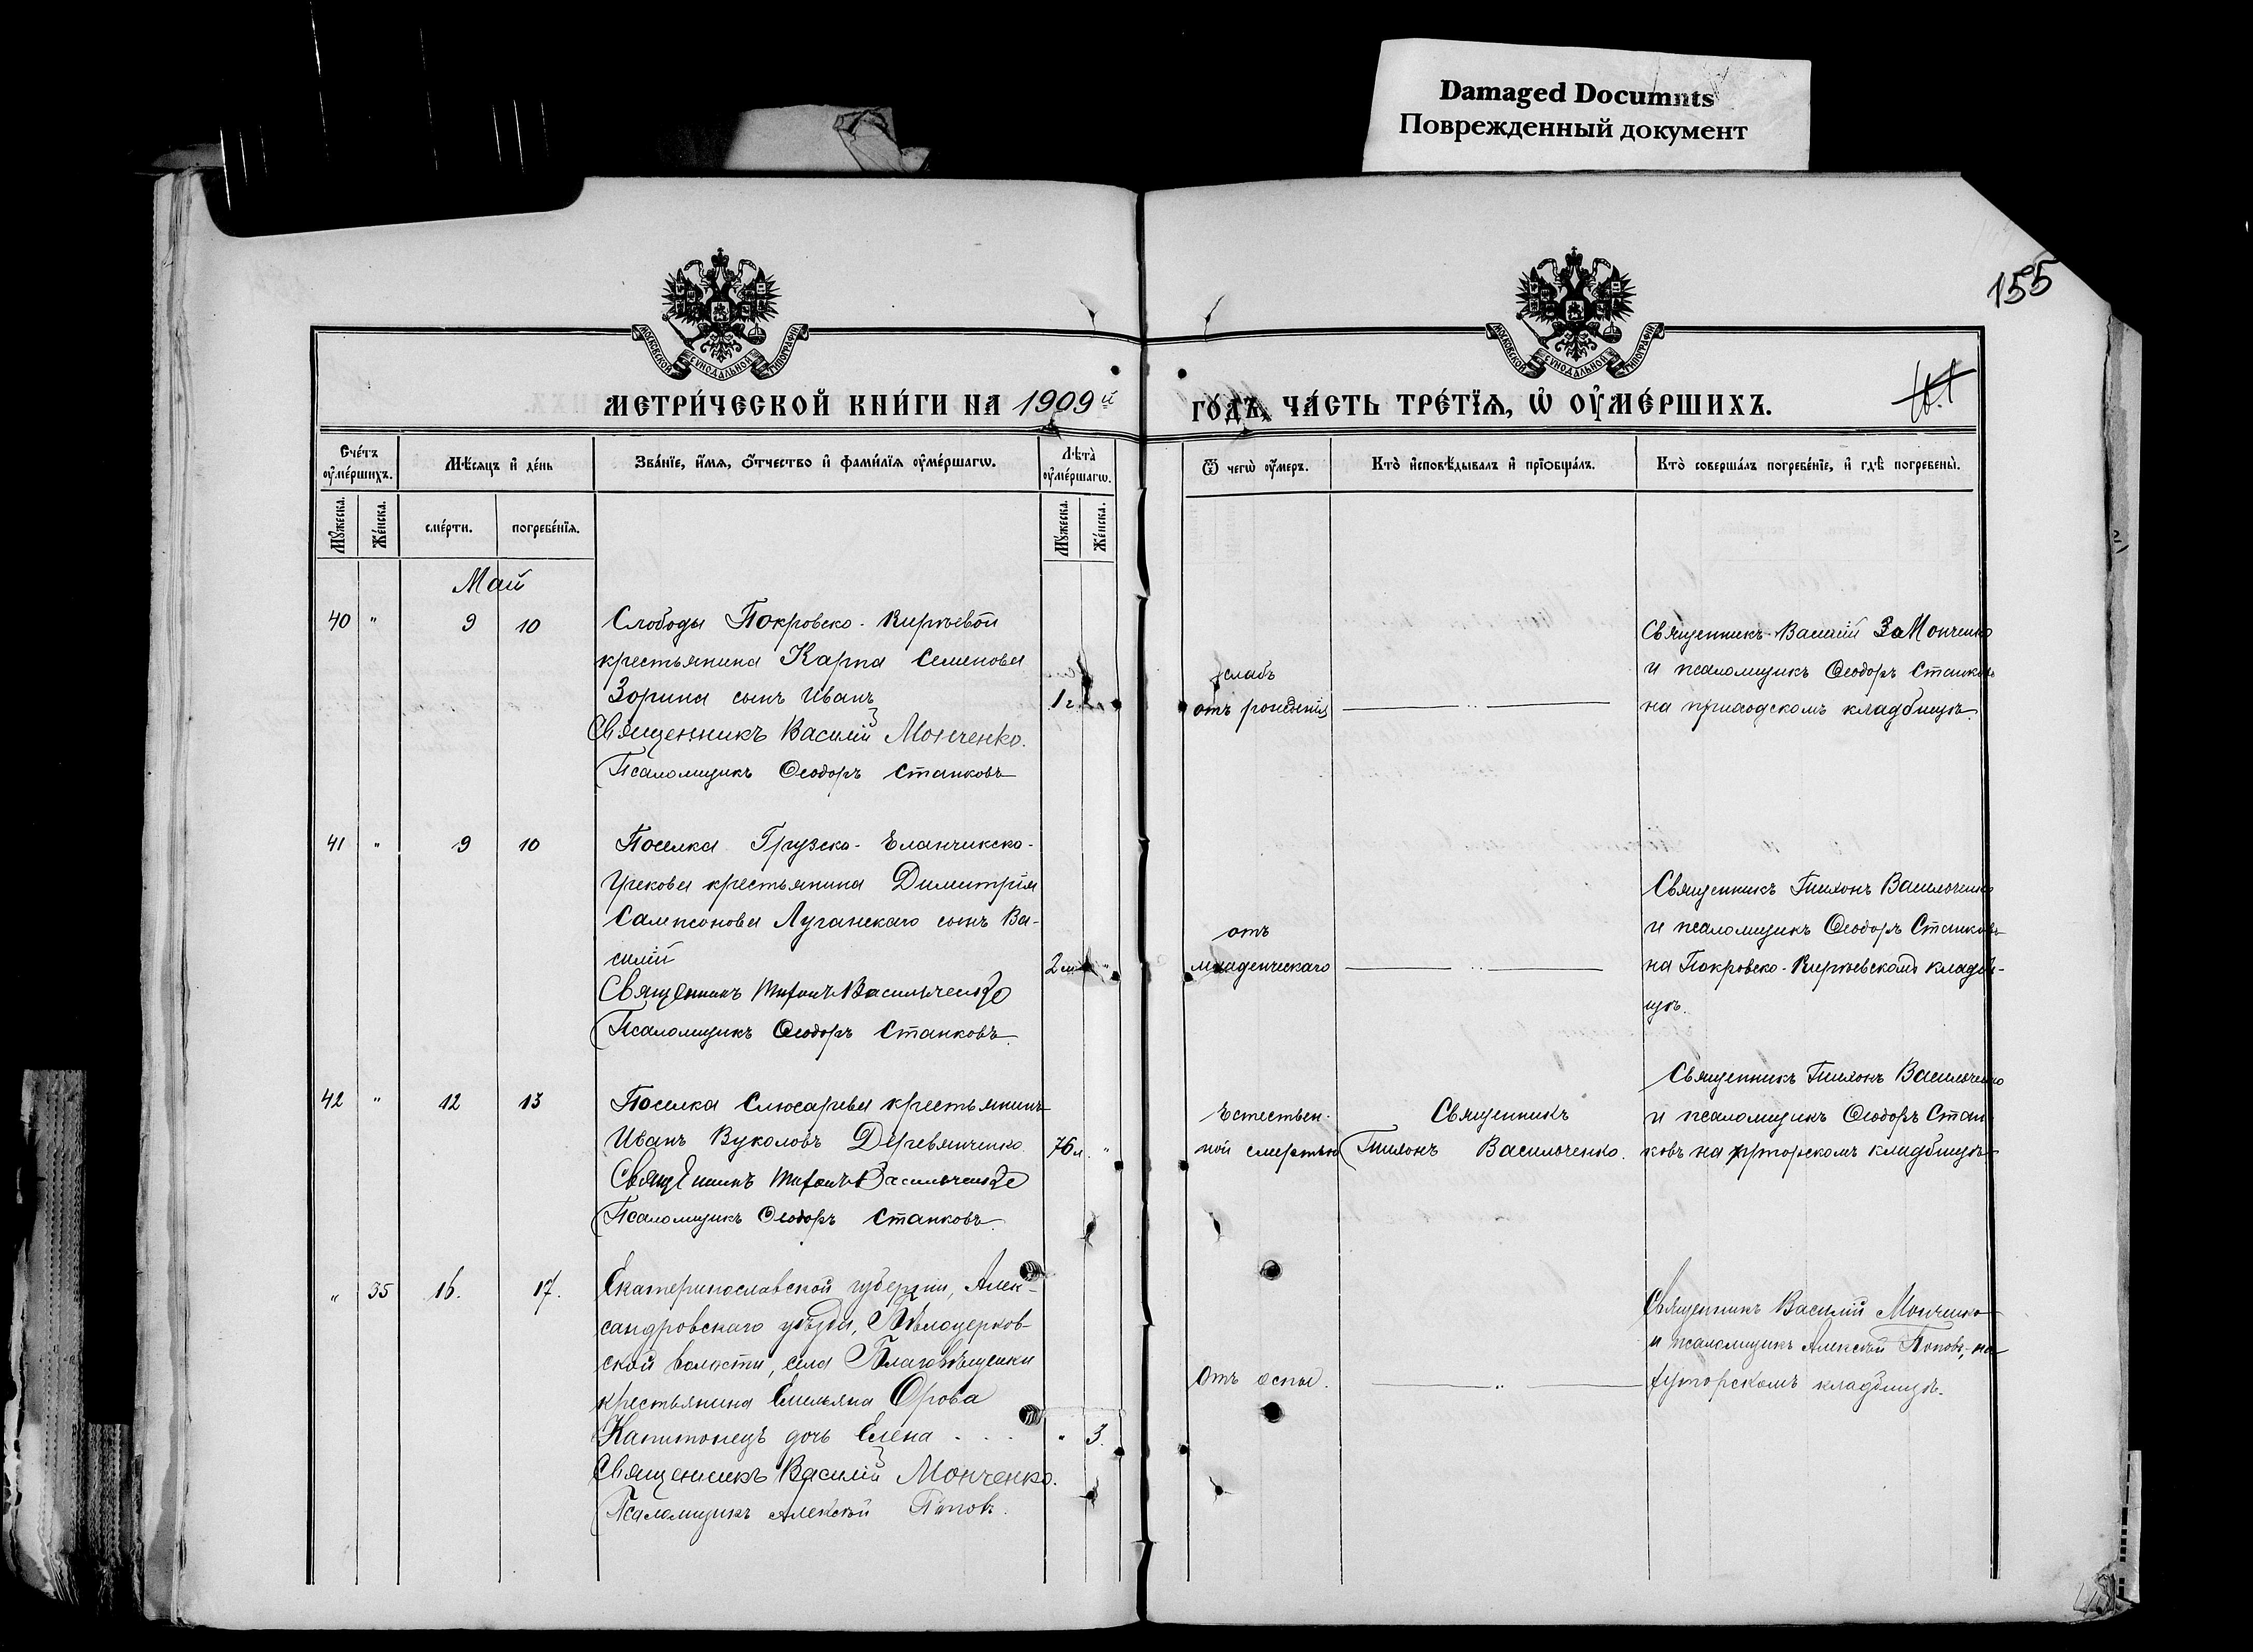 Damaged Documnts
Поврежденный документ
155
МОСКОВСКОЙ СУНОДАЛЬНОЙ ТИПОГРАФІИ
МОСКОВСКОЙ СУНОДАЛЬНОЙ ТИПОГРАФІИ
МЕТРИ́ЧЕСКОЙ КНИ́ГИ НА 1909й ГО́ДЪ, ЧА́СТЬ ТРЕ́ТЇѦ, Ѡ҆ ОУ҆МЕ́РШИХЪ.
Сче́тъ ᲂу҆ме́ршихъ.
Мѣ́сѧцъ и҆ де́нь
Зва́нїе, и҆́мѧ, ѻ҆́тчество и҆ фами́лїѧ ᲂу҆ме́ршагѡ.
Лѣ̀та̀ ᲂу҆ме́ршагѡ.
Ѿ чегѡ̀ ᲂу҆́меръ.
Кто̀ и҆сповѣ́дывалъ и҆ прїѡбща́лъ.
Кто̀ соверша́лъ погребе́нїе, и҆ гдѣ̀ погребены̀.
Мꙋ́жеска.
Же́нска.
сме́рти.
погребе́нїѧ.
Мꙋ́жеска.
Же́нска.
Май
40 " 9 10
Слободы Покровско-Киреевой
крестьянина Карпа Семенова
Зорина сынъ Иванъ
1 г.
Священникъ Василій Монченко.
Псаломщикъ Ѳеодоръ Станковъ
слабъ
отъ рожденія
Священникъ Василій За Монченко
и псаломщикъ Ѳеодоръ Станковъ
на приходскомъ кладбищѣ.
41 " 9 10
Поселка Грузско-Еланчикско-
Грекова крестьянина Димитрія
Сампсонова Луганскаго сынъ Ва-
силій
2 "
Священникъ Тихонъ Васильченко
Псаломщикъ Ѳеодоръ Станковъ.
отъ
младенческаго
Священникъ Тихонъ Васильченко
и псаломщикъ Ѳеодоръ Станковъ
на Покровско-Киреевскомъ кладби-
щѣ.
42 " 12 13
Поселка Слюсарева крестьянинъ
Иванъ Вуколовъ Деревянченко
76 л. "
Священникъ Тихонъ Васильченко
Псаломщикъ Ѳеодоръ Станковъ.
Естествен-
ной смертью
Священникъ
Тихонъ Васильченко.
Священникъ Тихонъ Васильченко
и псаломщикъ Ѳеодоръ Стан-
ковъ на хуторскомъ кладбищѣ
" 35 16. 17.
Екатеринославской губерніи, Алек-
сандровскаго уѣзда, Бѣлоцерков-
ской волости, села Благовѣщенки
крестьянина Емельяна Орова
Капитонецъ дочь Елена . . .
" 3.
Священникъ Василій Монченко.
Псаломщикъ Алексѣй Поповъ.
Отъ оспы.
Священникъ Василій Монченко
и псаломщикъ Алексѣй Поповъ, на
хуторскомъ кладбищѣ.